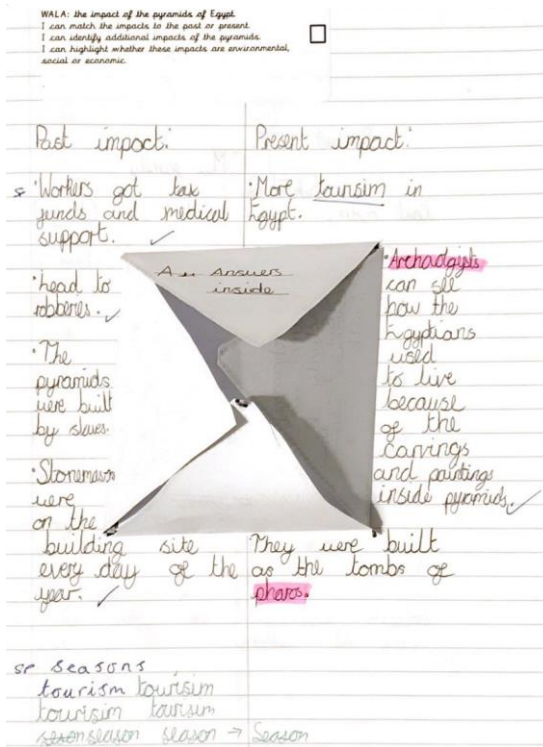 WALA: the impact of the pyramids of Egypt.
I can match the impacts to the past or present.
I can identify additional impacts of the pyramids.
I can highlight whether these impacts are environmental,
social or economic.
Past impact:
s ·Workers got tax
funds and medical
support.
·head to
robberies.
·The
pyramids
were built
by slaves.
·Stonemason
were
on the
building site
every day of the
year.
Present impact:
·More tourisim in
Egypt.
·Archaolgists
can see
how the
Egyptians
used
to live
because
of the
carvings
and paintings
inside pyramids.
They were built
as the tombs of
pharos.
Answers
inside
sp seasons
tourism tourisim
tourisim toursim
season season → Season